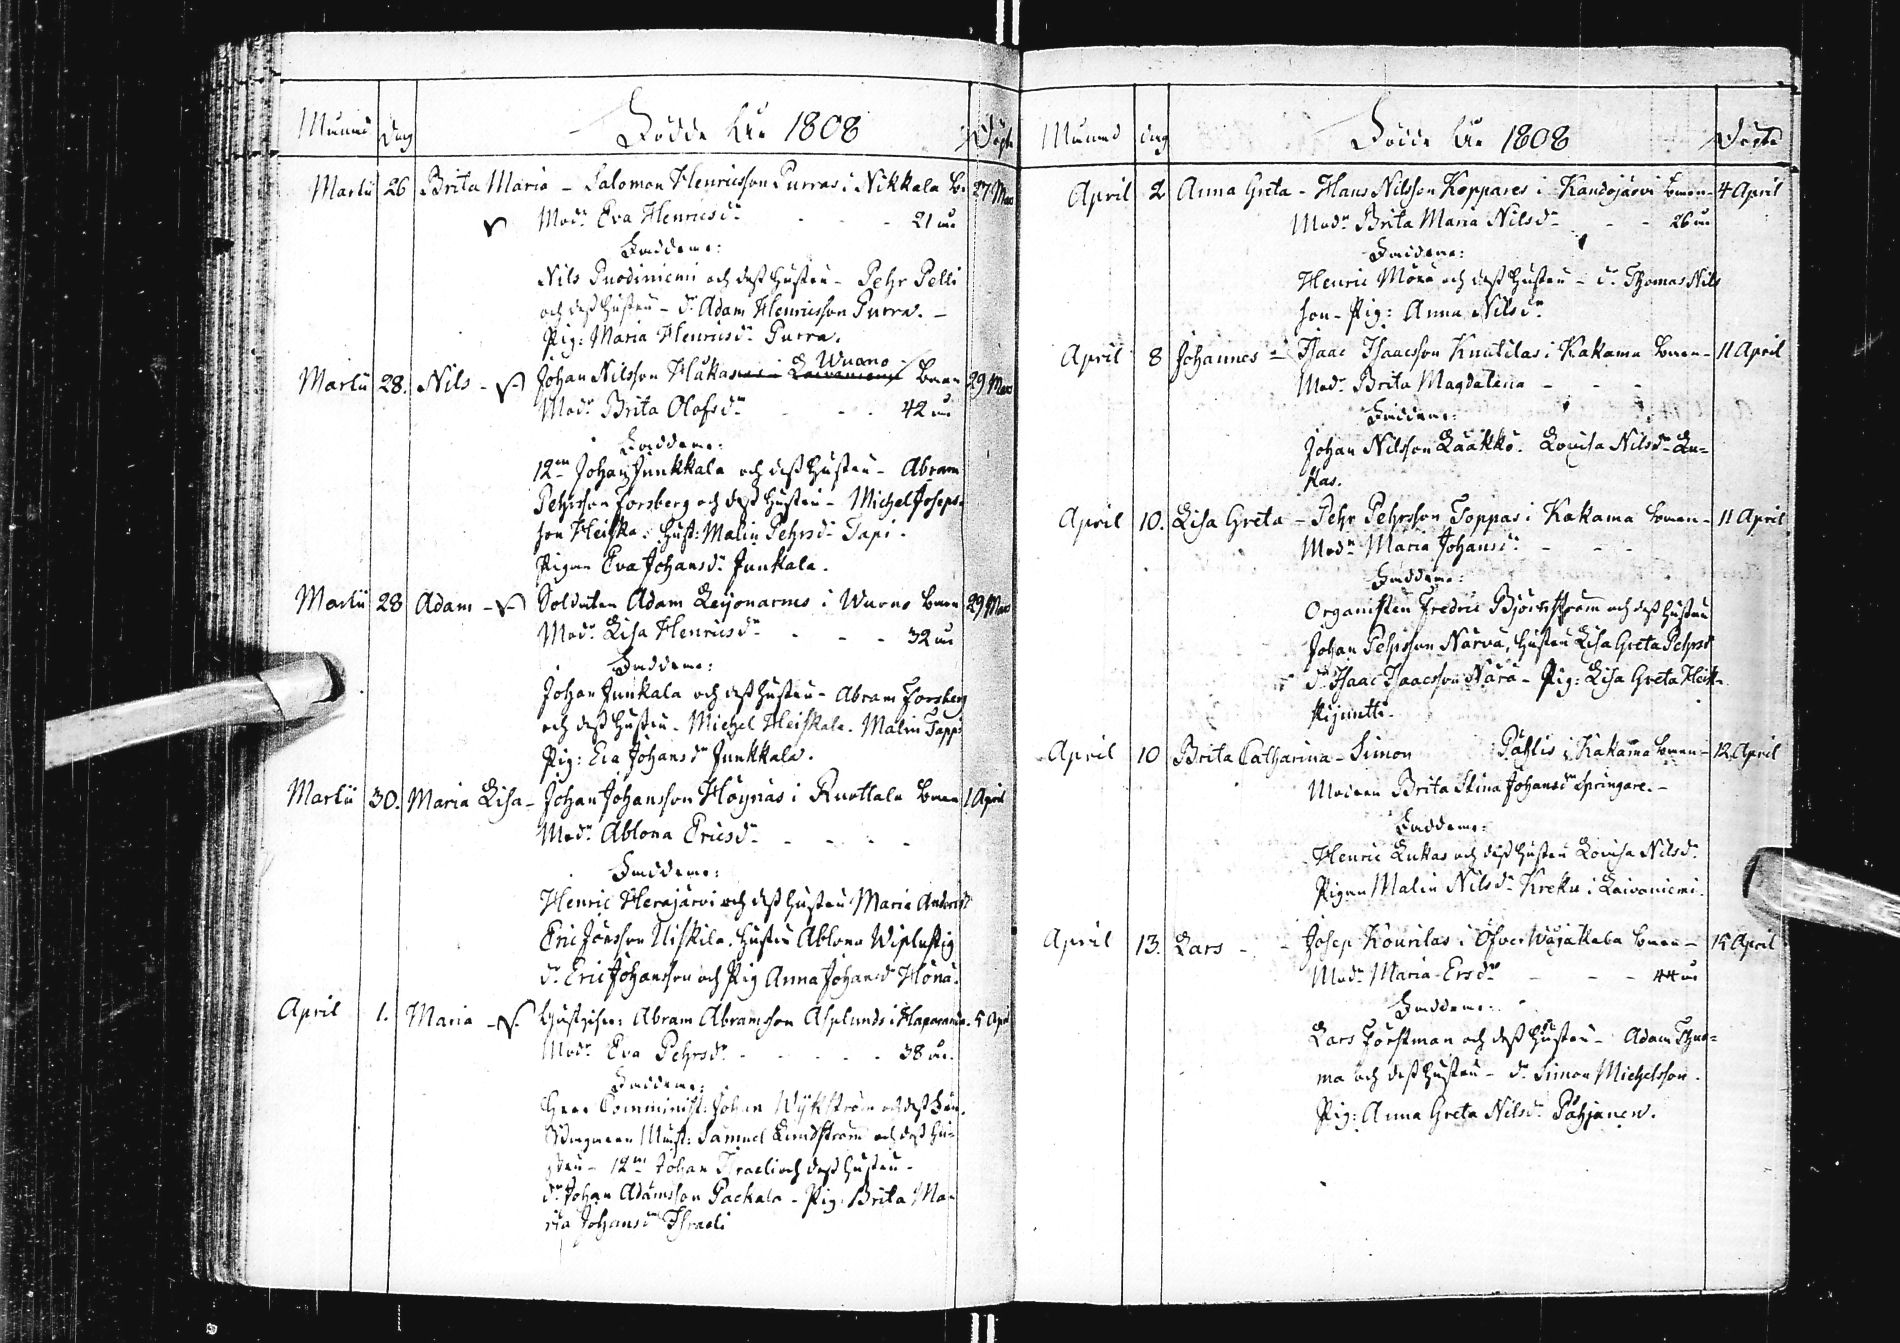 Månad Dag Födde År 1808 Döpte
Martii 26 Brita Maria - Salomon Henricsson Purras i Nikkala bn 27 Mars
Modr Eva Henricsdr - - - 21 år
Faddrar:
Nils Puodiniemi och dess Hustru - Pehr Pelli
och dess Hustru - d. Adam Henricsson Purra. -
Pig: Maria Henricsdr Purra.
Wuono
Martii 28. Nils - Johan Nilsson Hukas barn 29 Mars
Modr Brita Olofsdr - - - 42 år
Faddrar:
12mn Johan Junkkala och dess Hustru - Abram
Pehrsson Forsberg och dess Hustru - Michel Josephs-
son Heiska. Hust: Malin Pehrsdr Tapi.
Pigan Eva Johansdr Junkala.
Martii 28 Adam - Soldaten Adam Leijonarms i Wuono barn 29 Mars
Modr Lisa Henricsdr - - - 32 år
Faddrar:
Johan Junkala och dess Hustru - Abram Forsberg
och dess Hustru. Michel Heiskala. Malin Tappi
Pig: Eva Johansdr Junkkala.
Martii 30. Maria Lisa - Johan Johansson Höynäs i Ruottala barn 1 April
Modr Ablona Ericsdr - - - -
Faddrar:
Henric Herajärvi och dess Hustru Maria Andersdr
Eric Jönsson Niskila. Hustru Ablona Wiplustig
d. Eric Johansson och Pig Anna Johansdr Hönä.
April 1. Maria - Abram Abramsson Asplunds i Haparanda. 5 April
Modr Eva Pehrsdr - - - - 38 år.
Faddrar:
Herr Comminist: Johan Wijkström och dess Fru.
Must: Samuel Lindström och dess Hu-
stru - 12mn Johan Israeli och dess Hustru -
dr Johan Adamsson Packala - Pig: Brita Ma-
ria Johansdr Israeli
Månad dag Födde År 1808 Döpte
April 2 Anna Greta - Hans Nilsson Koppares i Kandojärvi barn - 4 April
Modr Brita Maria Nilsdr - - 26 år
Faddrar:
Henric Mörä och dess Hustru - d. Thomas Nils
son - Pig: Anna Nilsdr
April 8 Johannes - Isaac Isaacsson Knutilas i Kakama barn - 11 April
Modr Brita Magdalena - - -
Faddrar:
Johan Nilsson Laakko. Lovisa Nilsdr Lu-
kas.
April 10. Lisa Greta - Pehr Pehrsson Toppas i Kakama barn - 11 April
Modr Maria Johansdr - - -
Faddrar:
Organisten Fredric Björnström och dess Hustru
Johan Pehrsson Närvä, Hustru Lisa Greta Pehrsdr
d. Isaac Isaacsson Närä - Pig: Lisa Greta Heik-
kijuntti.
April 10 Brita Catharina - Simon Påhlis i Kakama barn - 12 April
Modren Brita Stina Johansdr Springare. -
Faddrar:
Henric Lukas och dess Hustru Lovisa Nilsdr
Pigan Malin Nilsdr Kreku i Laivaniemi.
April 13. Lars - - Josep Kourilas i Öfver Wojakala barn - 15 April
Modr Maria Ersdr - - - 44 år
Faddrar:
Lars Forstman och dess Hustru - Adam Thuo-
ma och dess Hustru - d. Simon Michelsson.
Pig: Anna Greta Nilsdr Påhjanen.